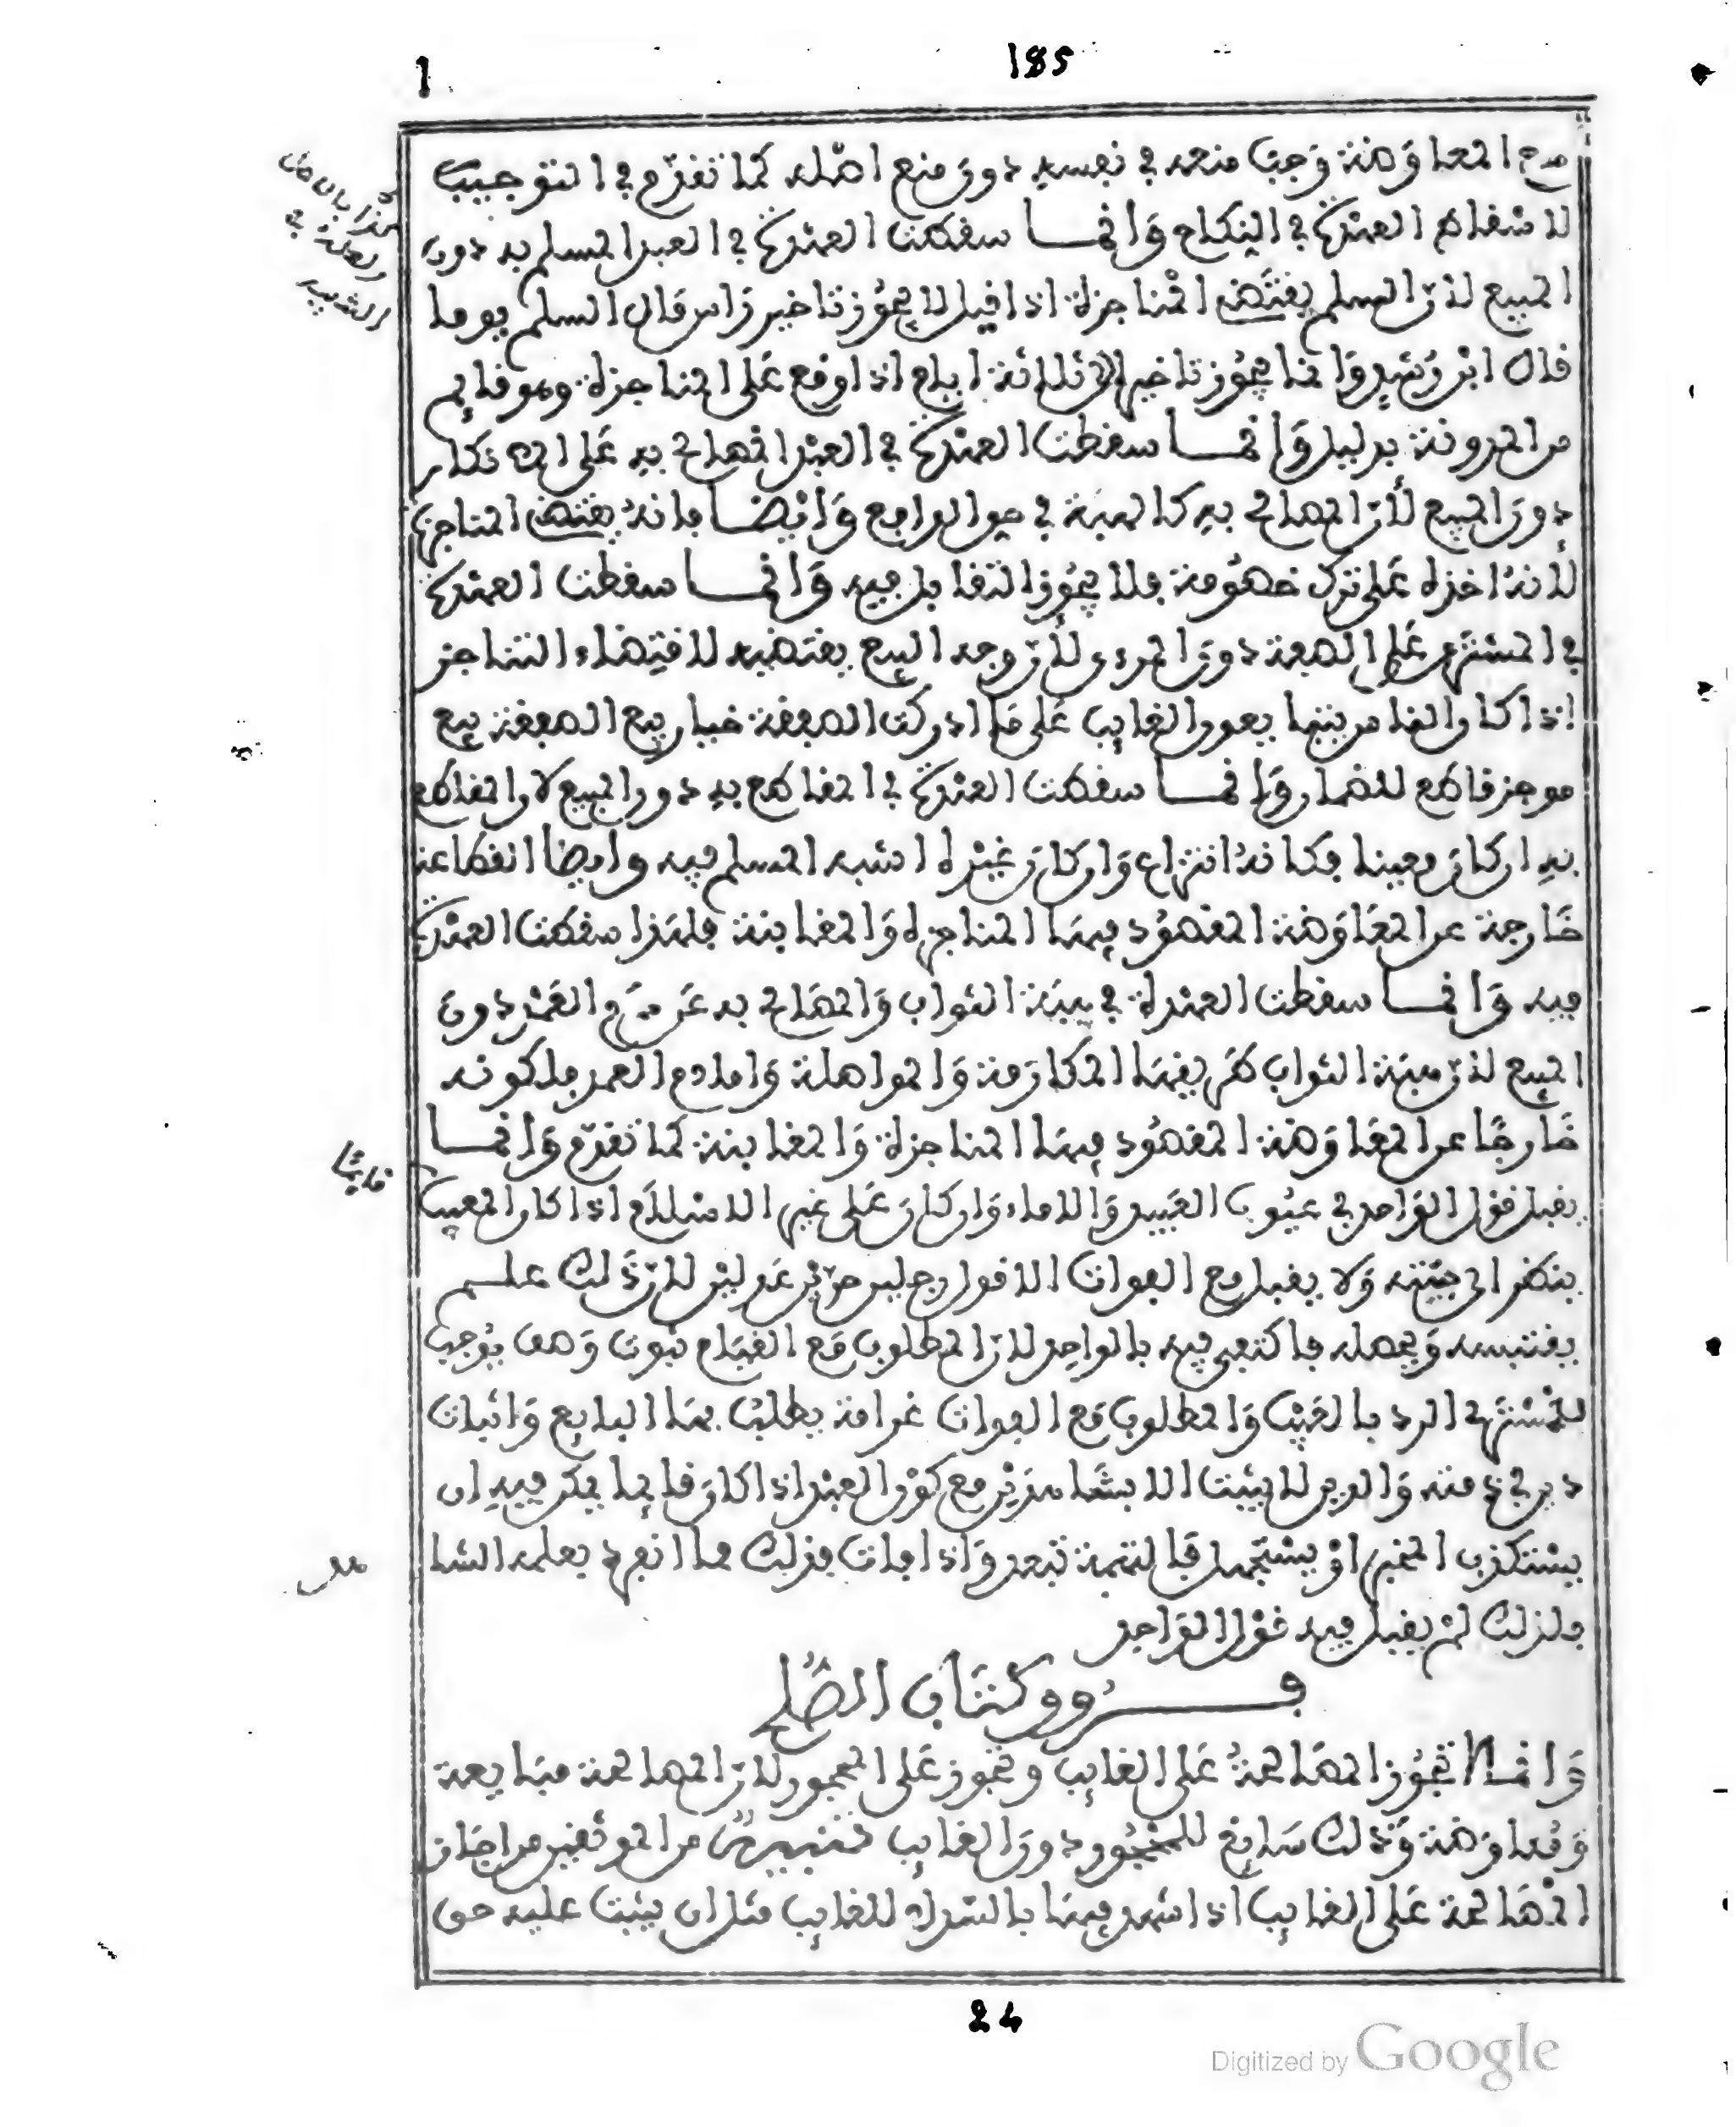 185
1
مدح المعاوضة وجب منعه في نفسه دون منع اصله كما تقدم في التوجيب
لاسقاط العهدة في النكاح وانما سقطت العهدة في العبد المسلم به دون
المبيع لان السلم يقتضي المناجزة اذا قيل لا يجوز تاخير راس مال السلم يوما
قال ابن رشد وانما يجوز تاخيره الثلاثة ايام اذا وقع على المناجزة وهو قايم
من المدونة بدليل وانما سقطت العهدة في العبد المصالح به على الانكار
دون المبيع لان المصالح به كالهبة في حق الدافع وايضا فانه يقتضي المناجزة
لانه اخذه على ترك خصومة فلا يجوز التقابل فيه وانما سقطت العهدة
في المشترى على الصفة دون المرءي لان وجه البيع يقتضيه لاقتضاء التناجز
اذا كان الضمان بينهما بعود الغايب على ما ادركت الصفقة خيار بيع الصفقة بيع
موجز قاطع للضمان وانما سقطت العهدة في المقاطع به دون المبيع لان المقاطع
به ان كان معينا فكانه انتزاع وان كان غيره اشبه المسلم فيه وايضا القطاعة
خارجة عن المعاوضة المقصود فيها المناجزة والمغابنة فلهذا سقطت العهدة
فيه وانما سقطت العهدة في هبة الثواب والمصالح به عن دم العمد دون
المبيع لان هبة الثواب طريقها المكارمة والمواصلة واما دم العمد فلكونه
خارجا عن المعاوضة المقصود فيها المناجزة والمغابنة كما تقدم وانما
يقبل قول الواحد في عيوب العبيد والاماء وان كان على غير الاسلام اذا كان المعيب
ينظر الى جثته ولا يقبل مع الفوات الا قول رجلين حرين عدلين لان ذلك علم
يقتبسه ويحصله فاكتفي فيه بالواحد لان المطلوب مع القيام ثبوت وصف يوجب
للمشتري الرد بالعيب والمطلوب مع الفوات غرامة يطلب بها البايع واثبات
دين في ذمته والدين لا يثبت الا بشاهدين مع كون العبد اذا كان قايما يمكن فيه ان
يستكذب المخبر او يستجهل فالتهمة تبعد واذا فات فذلك مما انفرد بعلمه الشا
فلذلك لم يقبل فيه قول الواحد
فروق كتاب الصلح
وانما لا تجوز المصالحة على الغايب وتجوز على المحجور لان المصالحة مبايعة
ومعاوضة وذلك سايغ للمحجور دون الغايب تنبيه من الموثقين من اجاز
المصالحة على الغايب اذا اشهد فيها بالسداد للغايب مثل ان يثبت عليه حق
24
Digitized by Google